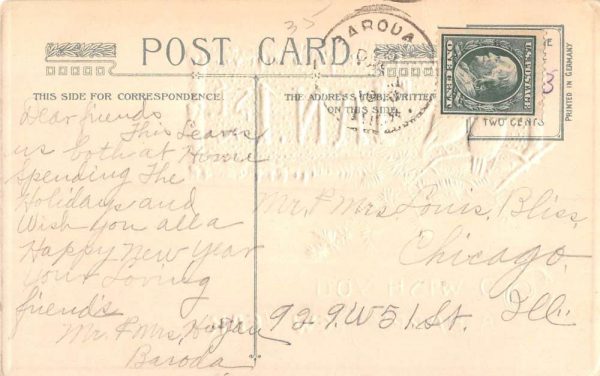 35
POST CARD
BARODA
THIS SIDE FOR CORRESPONDENCE
THE ADDRESS TO BE WRITTEN
ON THIS SIDE.
U.S. POSTAGE
ONE CENT
TWO CENTS
PRINTED IN GERMANY
Dear friends
This Leaves
us both at Home
spending The
Holidays and
Wish you all a
Happy New Year
your Loving
friends
Mr. & Mrs. Hogan
Baroda
Mr. & Mrs. Louis, Bliss,
Chicago.
929. W 51. St. Ill.
WISH YOU